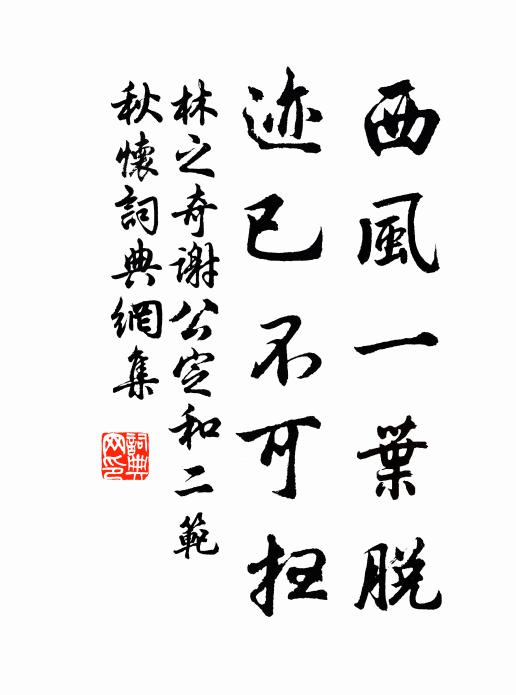 西風一葉脫
迹已不可扭
林之奇謝公定和二範
秋懷詞典網集
詞典網印